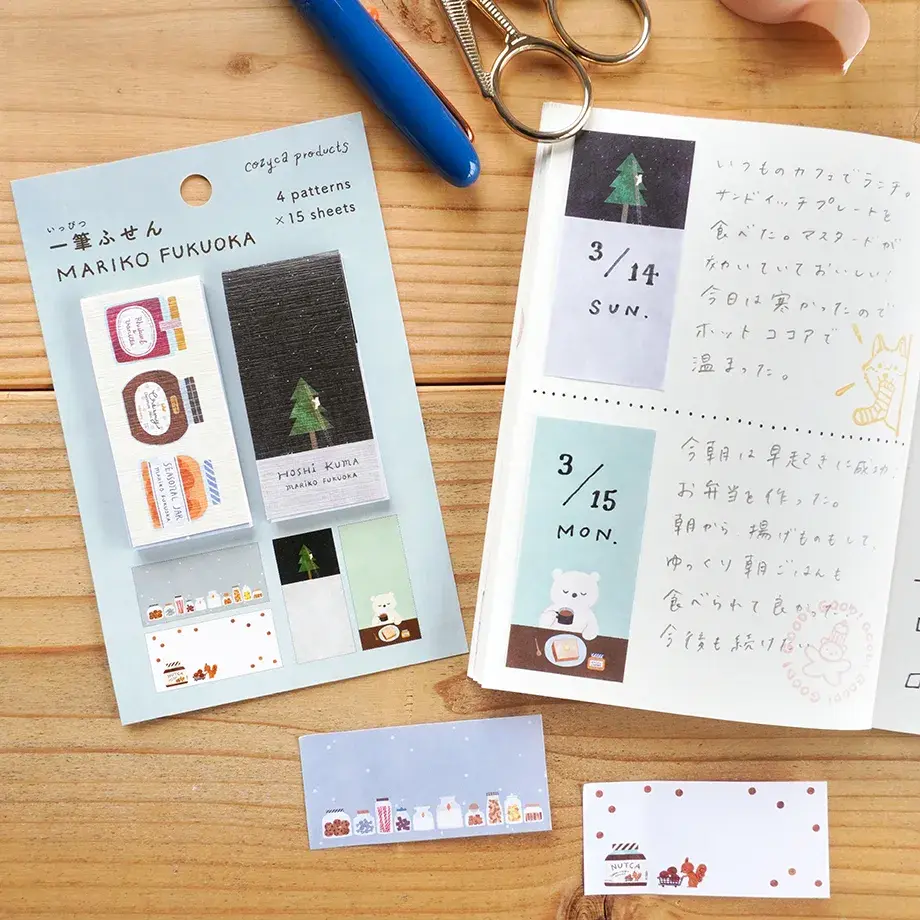 cozyca products
4 patterns
×15 sheets
いっぴつ
一筆ふせん
MARIKO FUKUOKA
Rhubarb
Vanilla
SEASONAL JAR
MARIKO FUKUOKA
HOSHI KUMA
MARIKO FUKUOKA
NUTCA
3/14
SUN.
いつものカフェでランチ。
サンドイッチプレートを
食べた。マスタードが
効いていておいしい!
今日は寒かったので
ホットココアで
温まった。
3/15
MON.
今朝は早起きに成功
お弁当を作った。
朝から、揚げものもして、
ゆっくり朝ごはんも
食べられて良かった
今後も続けたい
NUTCA